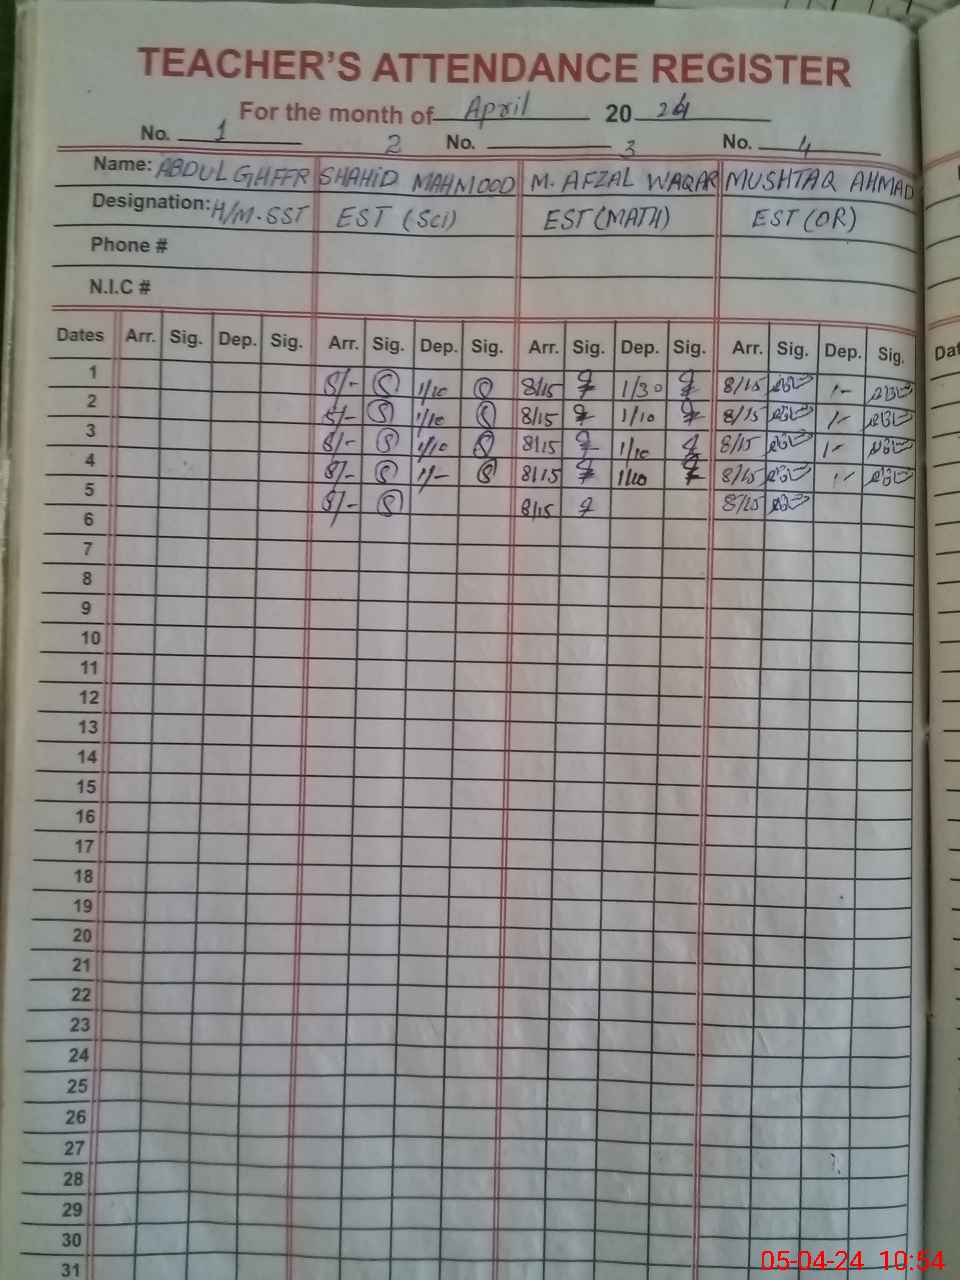 TEACHER'S ATTENDANCE REGISTER
For the month of April 20 24
No. 1 2 No. 3 No. 4
Name: ABDUL GHFFR SHAHID MAHMOOD M. AFZAL WAQAR MUSHTAQ AHMAD
Designation: H/M-SST EST (Sci) EST (MATH) EST (OR)
Phone #
N.I.C #
Dates Arr. Sig. Dep. Sig. Arr. Sig. Dep. Sig. Arr. Sig. Dep. Sig. Arr. Sig. Dep. Sig. Dat
1 8/- 1/10 8/15 1/30 8/15 1-
2 8/- 1/10 8/15 1/10 8/15 1-
3 8/- 1/10 8/15 1/10 8/15 1-
4 8/- 1/- 8/15 1/10 8/15 1-
5 8/- 8/15 8/15
6
7
8
9
10
11
12
13
14
15
16
17
18
19
20
21
22
23
24
25
26
27
28
29
30
31
05-04-24 10:54